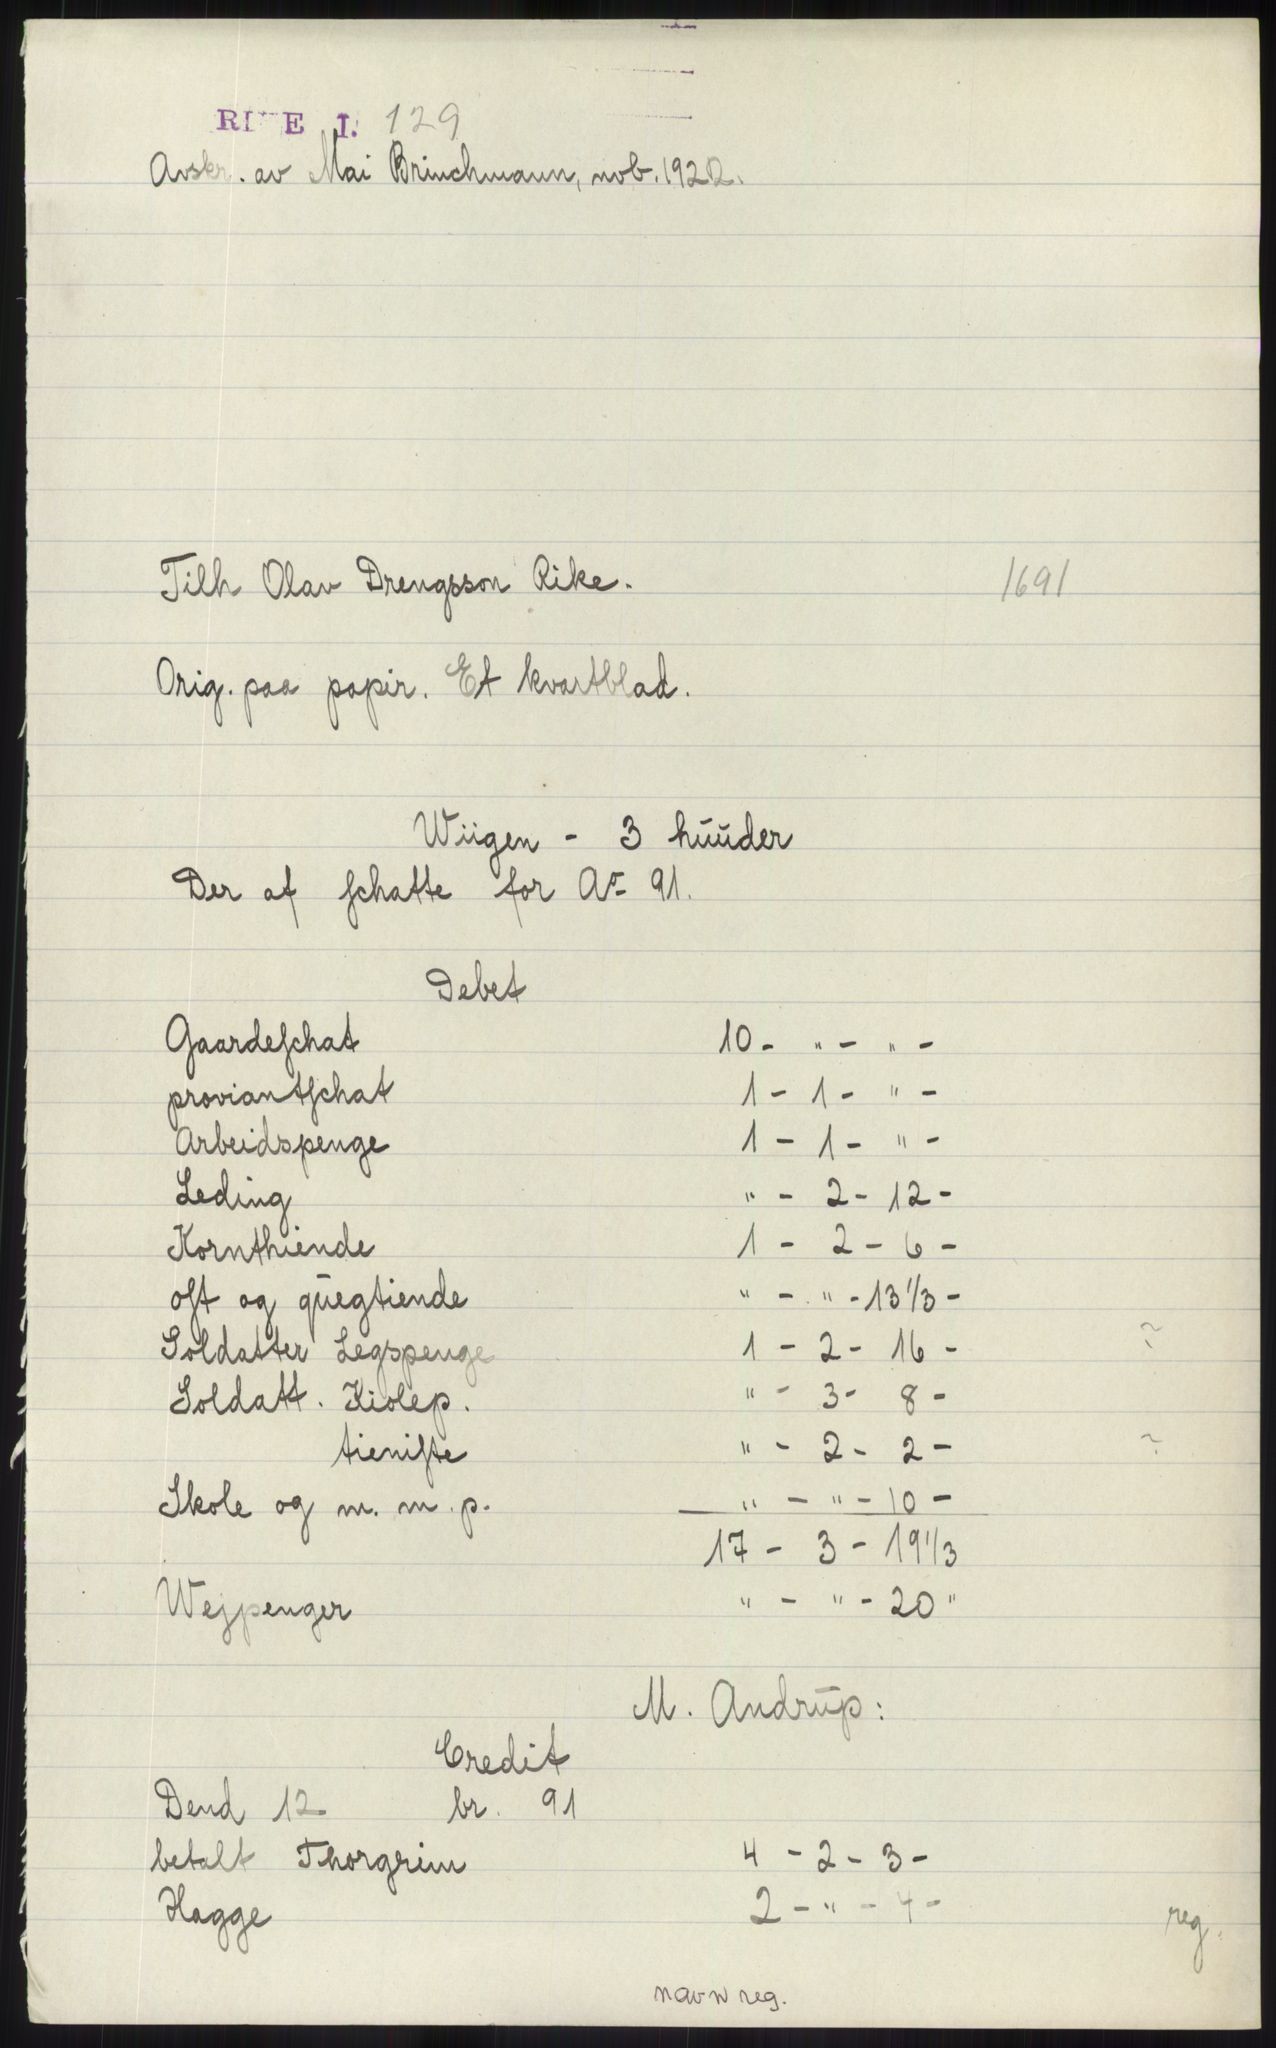 RIKE I. 129
Avskr. av Mai Brinchmann, nvb. 1922.
Tilh Olav Drengsson Rike. 1691
Orig. paa papir. Et kvartblad.
Wiigen - 3 huuder
Der af schatte for Ao 91.
Debet
Gaardeschat 10 - " - " -
proviantschat 1 - 1 - " -
Arbeidspenge 1 - 1 - " -
Leding " - 2 - 12 -
Kornthiende 1 - 2 - 6 -
ost og quegtiende " - " - 13 1/3 -
Soldatter Legspenge 1 - 2 - 16 - ?
Soldatt. Kiolep. " - 3 - 8 -
tieniste " - 2 - 2 - ?
Skole og m. m. p. " - " - 10 -
17 - 3 - 19 1/3
Wejpenger " - " - 20 "
M. Andrup:
Credit
Dend 12 br. 91
betalt Thorgrim 4 - 2 - 3 -
Hagge 2 - " - 4 -
reg.
navn reg.